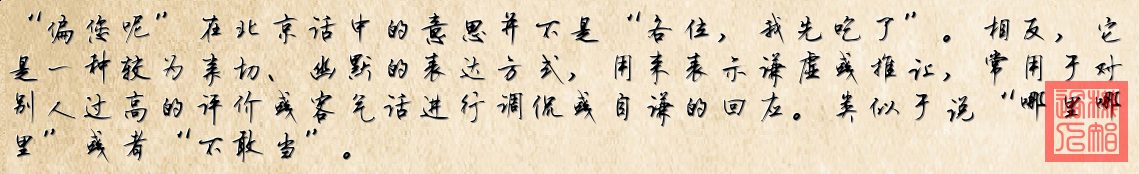 “偏您呢”在北京话中的意思并不是“各位，我先吃了”。相反，它
是一种较为亲切、幽默的表达方式，用来表示谦虚或推让，常用于对
别人过高的评价或客气话进行调侃或自谦的回应。类似于说“哪里哪
里”或者“不敢当”。